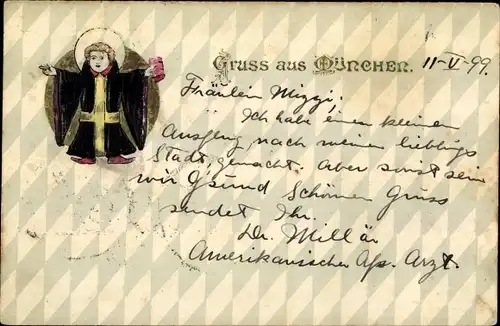 Gruss aus München. 11-V-99.
Fräulein Mizzi;
Ich habe einen kleinen
Ausflug nach meiner lieblings
Stadt, gemacht. Aber sonst sein
wir G'sund Schönen Gruss
sendet Ihr.
Dr. Millär
Amerikanischer Arzt.